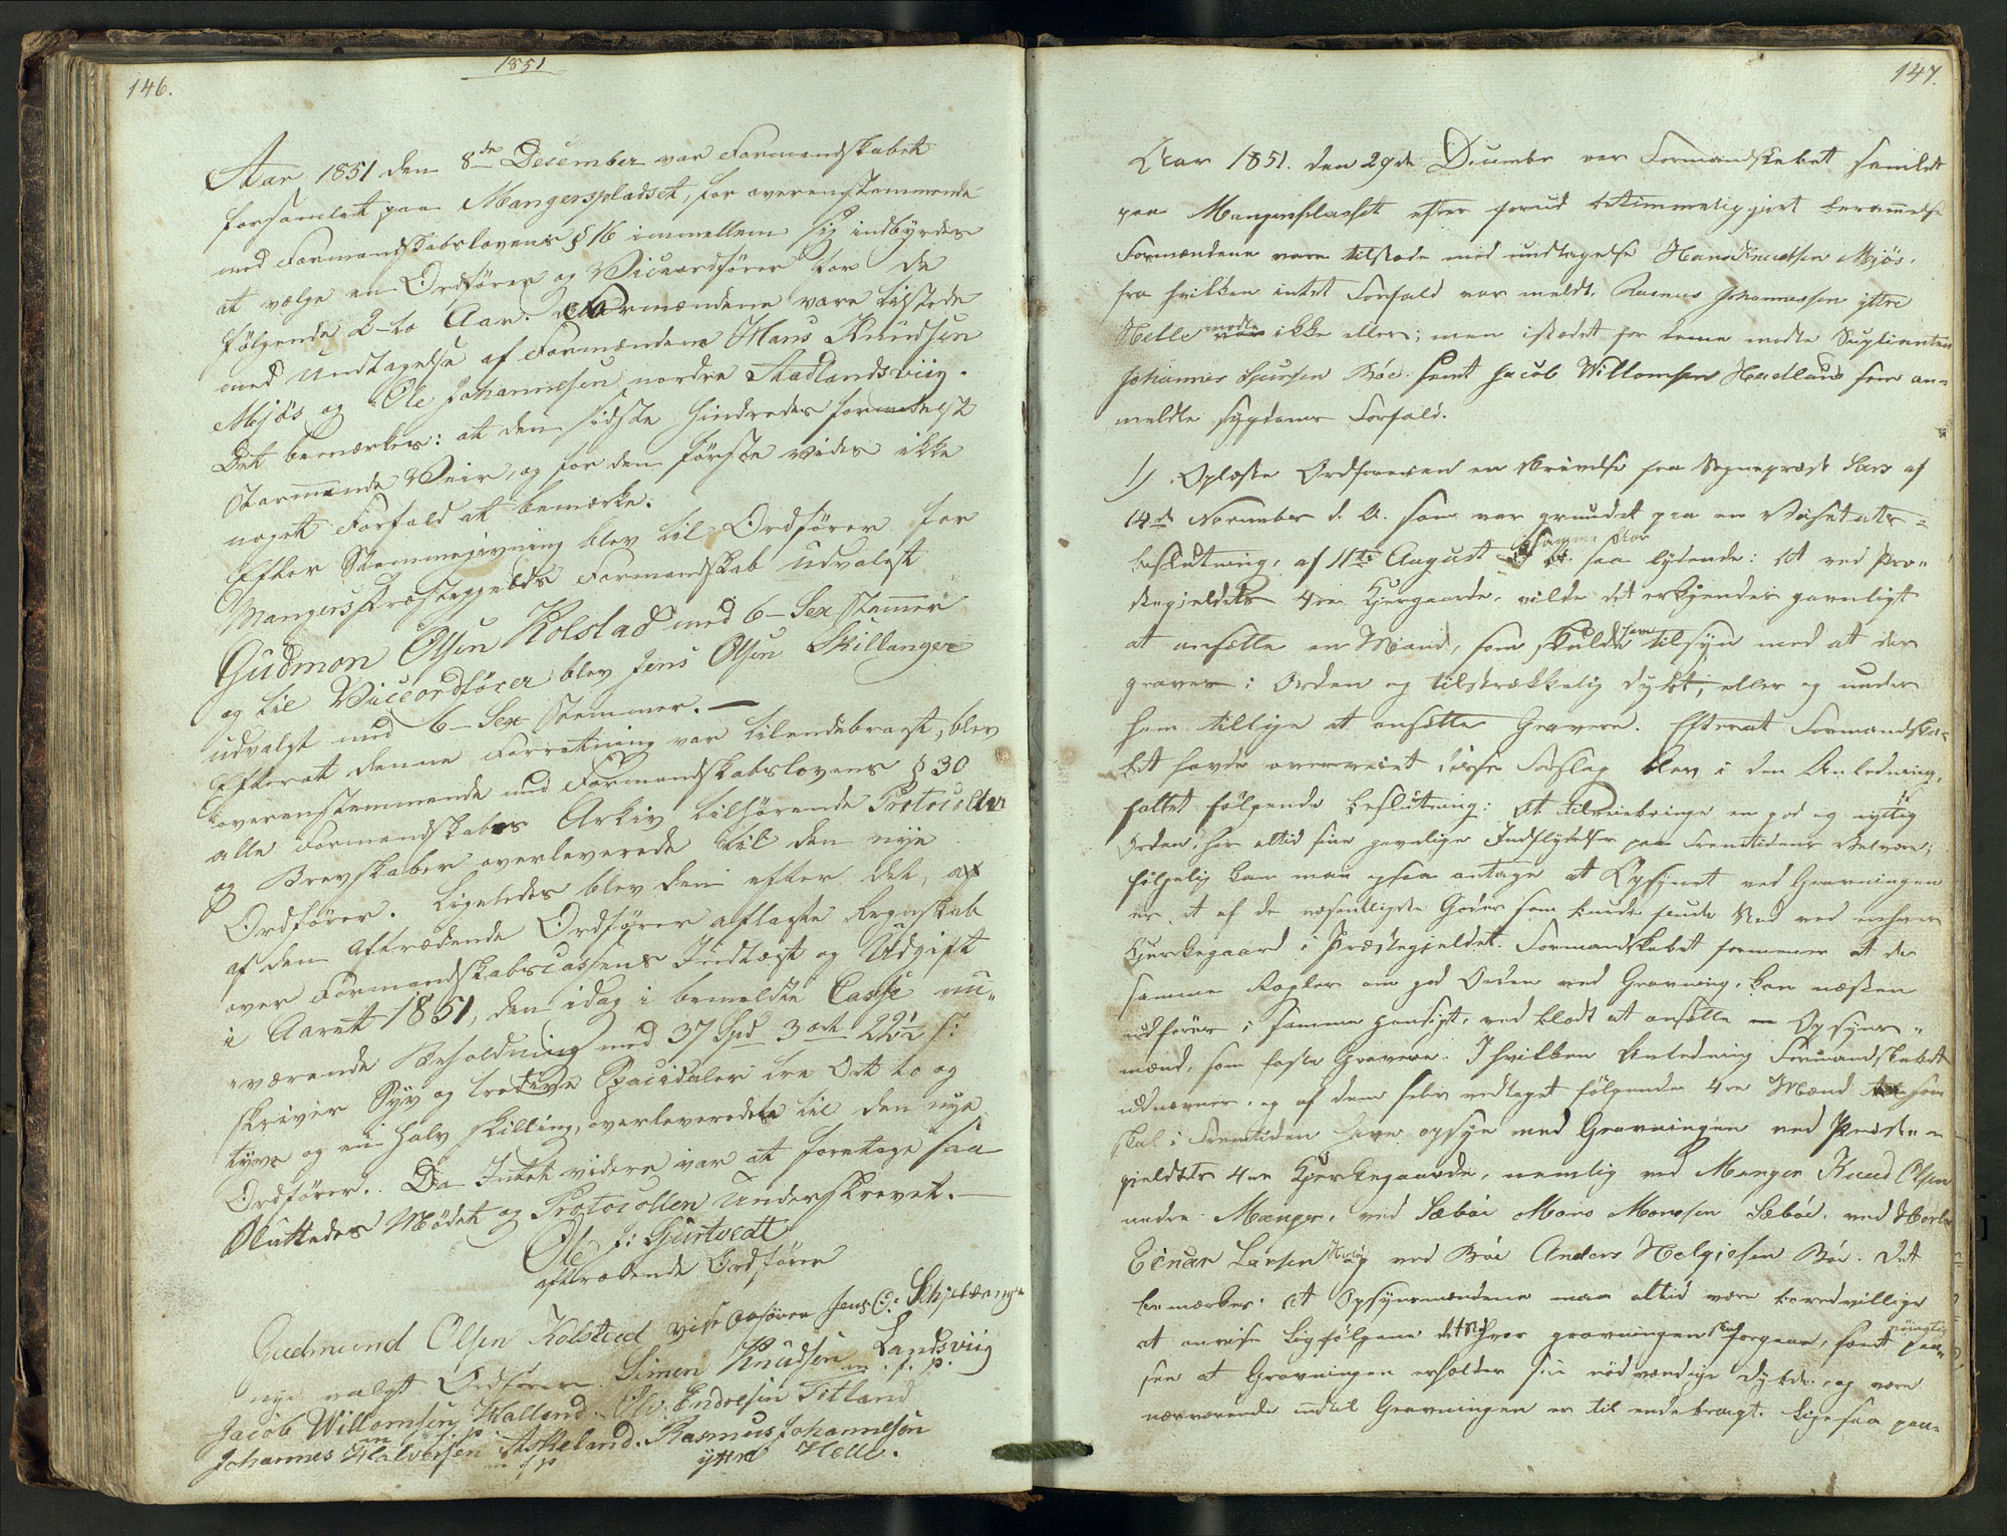 146.
1851
Aar 1851 den 8de December var Formandskabet
forsamlet paa Mangerspladset, for overensstemmende
med Formandskabslovens § 16 immellem sig indbyrdes
at vælge en Ordfører og Viceordfører for de
følgende 2-to Aar. Formændene vare tilstede
med Undtagelse af Formændene Hans Knudsen
Mjøs og Ole Johannesen nordre Aadlandsviig.
Det bemærkes: at den sidste hindredes formedelst
stormende Veir, og for den første vides ikke
noget Forfald at bemærke.
Efter Stemmegivning blev til Ordfører for
Mangers Præstegjelds Formandskab udvalgt
Gudmon Olsen Kolstad med 6-Sex Stemmer
og til Viceordfører blev Jens Olsen Skillanger
udvalgt med 6-Sex Stemmer. —
Efterat denne Forretning var tilendebragt, blev
overensstemmende med Formandskabslovens § 30
alle Formandskabets Arkiv tilhørende Protocoller
og Brevskaber overleverede til den nye
Ordfører. Ligeledes blev den efter det, af
af den aftrædende Ordfører aflagte Regnskab
over Formandskabscassens Indtægt og Udgift
i Aaret 1851, den idag i bemeldte Casse nu-
værende Beholdning med 37 Spd 3 ort 22½ s:
skriver Syv og tredive Speciedaler tre Ort to og
tyve og en halv skilling, overleveredete til den nye
Ordfører. Da Intet videre var at foretage saa
sluttedes Mødet og Protocollen Underskrevet. —
Ole J: Gurtvedt
aftrædende Ordfører
Gudmund Olsen Kolstad vise ordfører Jens O: Schjelanger
nye valgt Ordfører. Simen Knudsen Landsviig
m. f. p.
Jacob Willomsen Halland. Ole Endresen Titland
m. f. p.
Johannes Halvorsen Askeland. Rasmus Johannesen
m f p ytre Helle.
147.
Aar 1851. den 29de December var Formandskabet samlet
paa Mangerspladset efter forud bestemmeligjort berammelse
Formændene vare tilstede med undtagelse Hans Knudtsen Mjøs.
fra hvilken intet Forfald var meldt. Rasmus Johannessen ytre
Helle modte ikke eller; men istedet for denne modte Suplianten
Johannes Sjursen Bøe. samt Jacob Willomsen Hadland som an-
meldte sygdoms Forfald.
1) Oplæste Ordføreren en skrivelse fra Sogneprest Sars af
14de November d. A. som var grundet paa en
beslutning, af 11te August samme Aar saa lydende: At ved Præ-
stegjeldets 4re Kjergaarde, vilde det erkjendes gavnligt
at ansætte en Mand, som skulde have tilsyn med at der
graves i Orden og tilstrækkelig dybt, eller og under
ham tillige at ansætte Gravere. Efterat Formandska-
bet havde overveiet disse Forslag blev i den Anledning,
fattet følgende beslutning: At tilveiebringe en god og nyttig
Orden, har altid sine gavnlige Indflydelser paa Fremtidens Velvære;
følgelig kan man ogsaa antage at Opsynet ved Gravningen
er et af de væsentligste Goder som burde finde Sted ved enhver
Kjerkegaard i Præstegjeldet. Formandskabet formener at de
samme Regler om god Orden ved Gravning, kan næsten
udføres i samme hensigt, ved blodt at ansætte Opsyns-
mænd, som faste Gravere. I hvilken Anledning Formandskabet
udnævner, og af dem selv vedtaget følgende 4re Mænd som
skal i Fremtiden have opsyn med Gravningen ved Præste-
gjeldets 4re Kjerkegaarde, nemlig ved Manger Knud Olsen
nedre Manger, ved Sæbøe Mons Monssen Sæbøe, ved Herlø
Einar Larsen Herløe ved Bøe Anders Helgiesen Bøe. Det
bemærkes: At Opsynsmændene maa altid være beredvillige
at anvise Ligfølgene det Sted hvor gravningen skal foregaae, samt nøiagtig paa-
see at Gravningen erholder sin nødvændige Dybde, og være
nærværende indtil Gravningen er til ende bragt. Ligesaa paa-